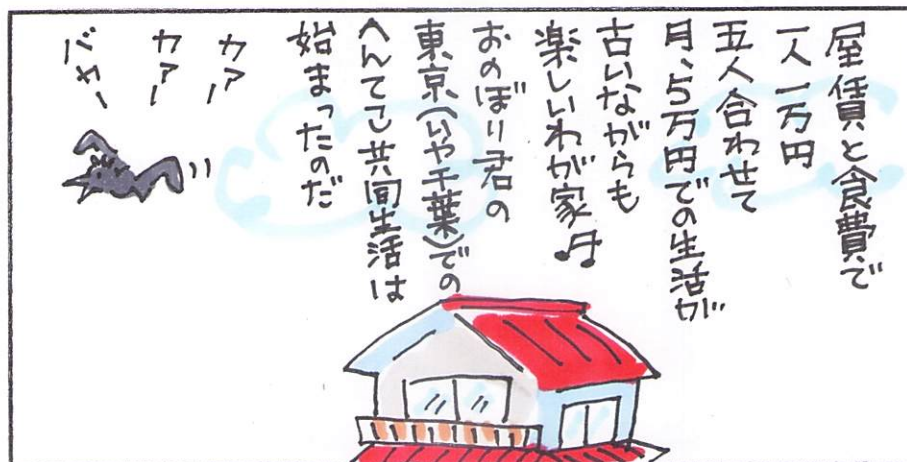 屋賃と食費で
一人一万円
五人合わせて
月、5万円での生活が
古いながらも
楽しいわが家♫
おのぼり君の
東京(いや千葉)での
へんてこ共同生活は
始まったのだ
カアー
カアー
バカー